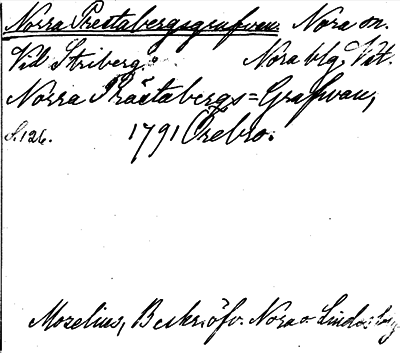 Norra Prestabergsgrufvan Nora sn.
Vid Striberg. Nora blg. Vst.
Norra Prästabergs=Grufvan,
S. 126. 1791 Örebro.
Mozelius, Beskr. öfv. Nora o. Lindesberg